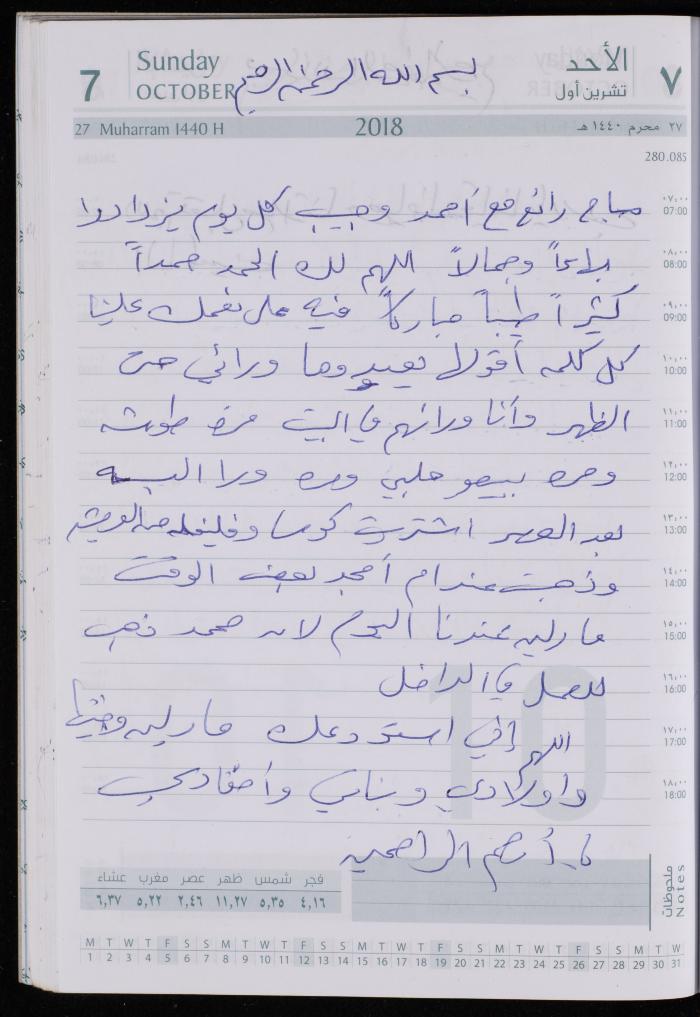 7 Sunday OCTOBER بسم الله الرحمن الرحيم الأحد تشرين أول ٧
27 Muharram 1440 H 2018 ٢٧ محرم ١٤٤٠ هـ
280.085
صباح رائع مع أحمد وحبيب كل يوم يزدادوا ٠٧:٠٠ 07:00
بلاغاً وجمالاً اللهم لك الحمد حمداً ٠٨:٠٠ 08:00
كثيراً طيباً مباركاً فيه على نعمك علينا ٠٩:٠٠ 09:00
كل كلمه أقولا يعيدوها ورائي حتى ١٠:٠٠ 10:00
الظهر وأنا ورائهم في البيت مره طوشه ١١:٠٠ 11:00
ومره بيبعو حليب ومره ورا البسه ١٢:٠٠ 12:00
بعد العصر اشتريت كوسا وفليفله من العريشه ١٣:٠٠ 13:00
وذهبت عند ام أمجد بعض الوقت ١٤:٠٠ 14:00
مارلين عندنا اليوم لان محمد ذهب ١٥:٠٠ 15:00
للعمل في الداخل ١٦:٠٠ 16:00
اللهم إني استودعك مارلين وجنينها ١٧:٠٠ 17:00
وأولادي وبناتي وأحفادي ١٨:٠٠ 18:00
يا أرحم الراحمين
فجر شمس ظهر عصر مغرب عشاء
٤,١٦ ٥,٣٥ ١١,٢٧ ٢,٤٦ ٥,٢٢ ٦,٣٧
ملحوظات Notes
M T W T F S S M T W T F S S M T W T F S S M T W T F S S M T W
1 2 3 4 5 6 7 8 9 10 11 12 13 14 15 16 17 18 19 20 21 22 23 24 25 26 27 28 29 30 31